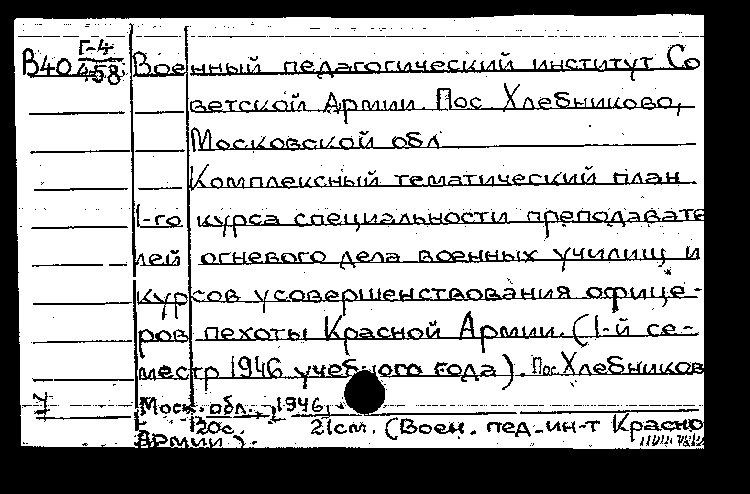 Г-4
В40 458 Военный педагогический институт Со
ветской Армии. Пос. Хлебниково,
Московской обл
Комплексный тематический план
1-го курса специальности преподавате
лей огневого дела военных училищ и
курсов усовершенствования офице-
ров пехоты Красной Армии. (1-й се-
местр 1946 учебного года). Пос. Хлебников
Моск. обл., 1946.
120с. 21см. (Воен. пед. ин-т Красно
Армии).